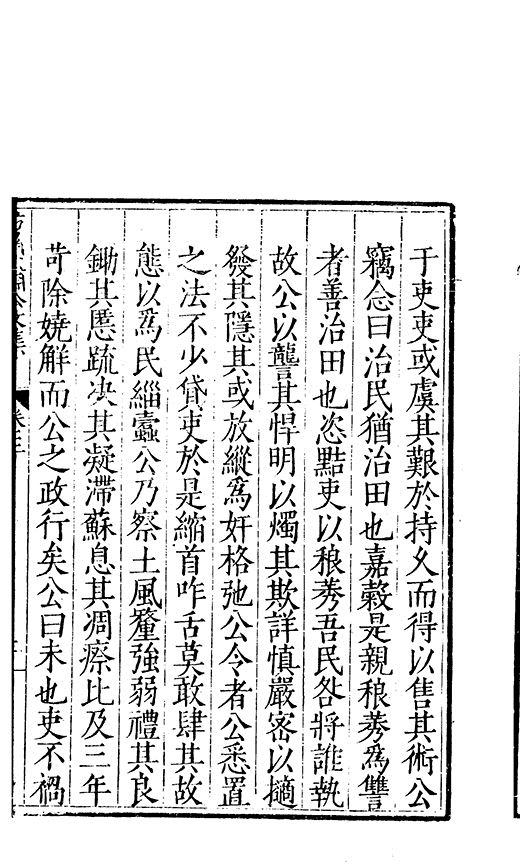 于吏吏或虞其艱於持久而得以售其術公
竊念曰治民猶治田也嘉穀是親稂莠爲讐
者善治田也恣黠吏以稂莠吾民咎將誰執
故公以讋其悍明以燭其欺詳慎嚴密以擿
發其隱其或放縱爲奸格弛公令者公悉置
之法不少貸吏於是縮首咋舌莫敢肆其故
態以爲民緇蠹公乃察土風釐強弱禮其良
鋤其慝疏决其凝滯蘇息其凋瘵比及三年
苛除嬈解而公之政行矣公曰未也吏不禍